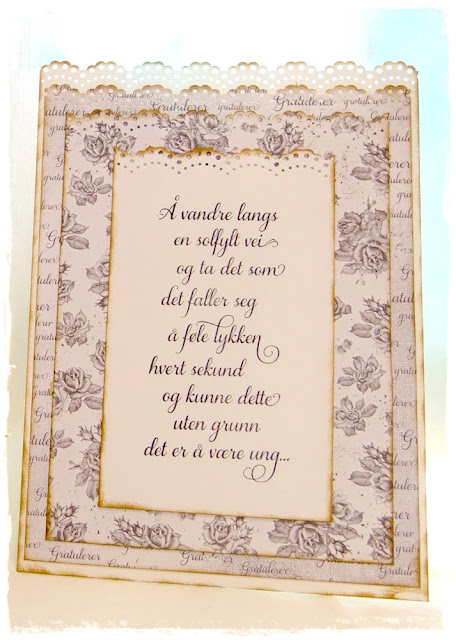 Gratulerer Gratulerer gratulerer
Å vandre langs
en solfylt vei
og ta det som
det faller seg
å føle lykken
hvert sekund
og kunne dette
uten grunn
det er å være ung...
Gratulerer Gratulerer